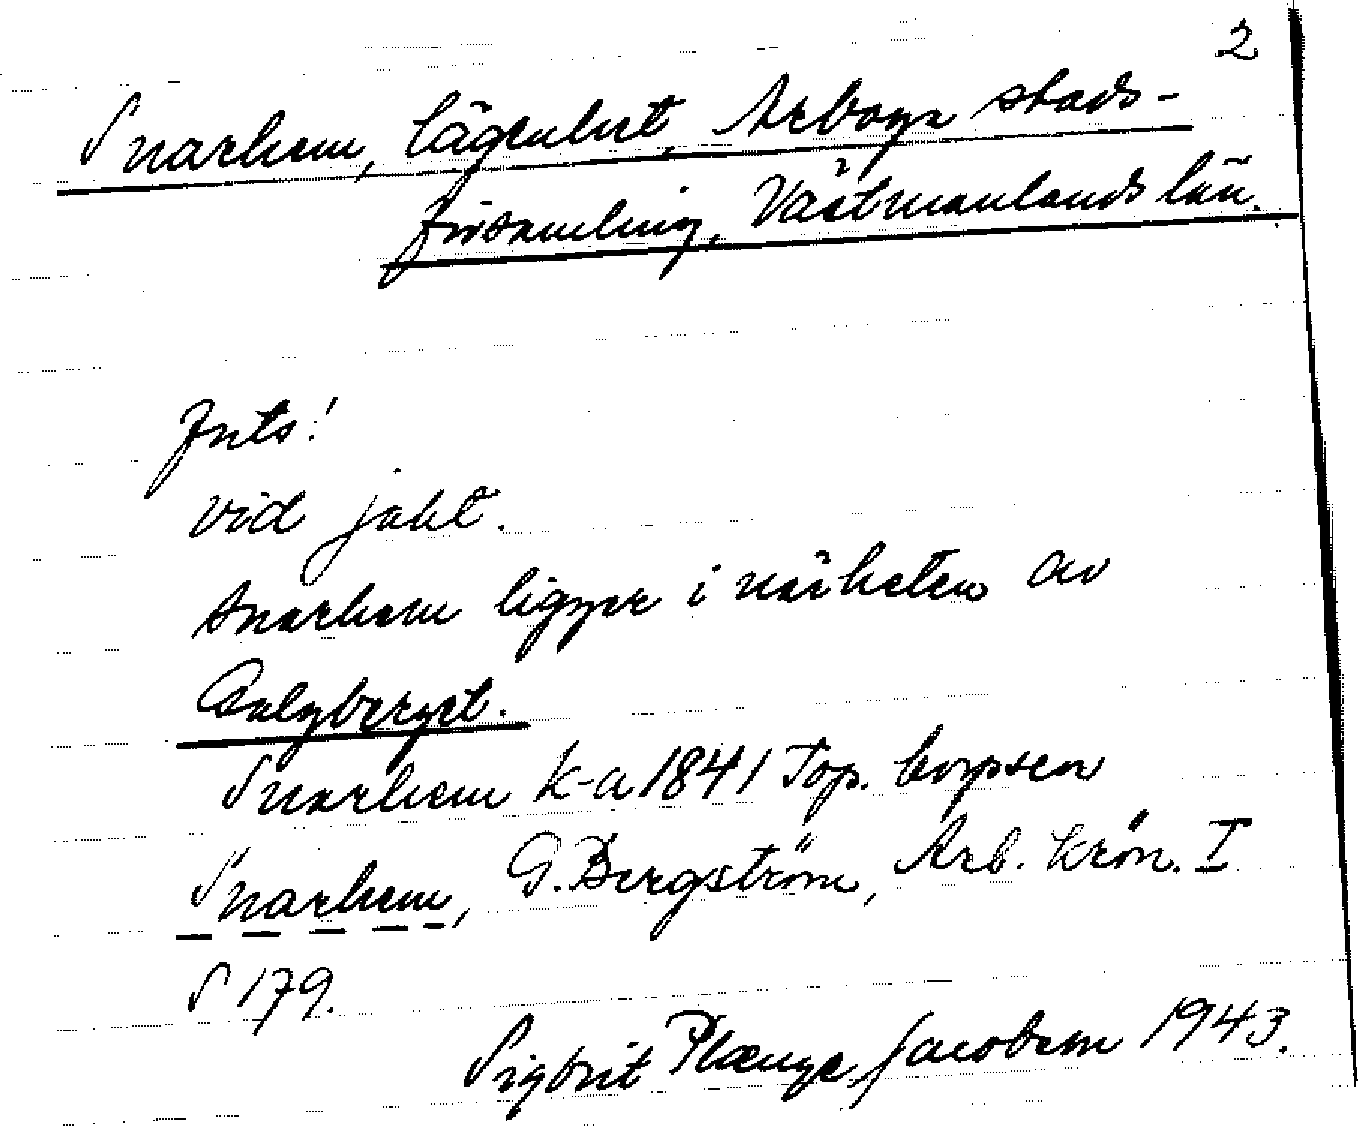 2
Snarhem, lägenhet, Arboga stads-
församling, Västmanlands län.
Forts!
vid jakt.
Snarhem ligger i närheten av
Galgberget.
Snarhem k-a 1841 Top. corpsen
Snarhem, G. Bergström, Arb. krön. I
S 179.
Sigbrit Plænge Jacobson 1943.